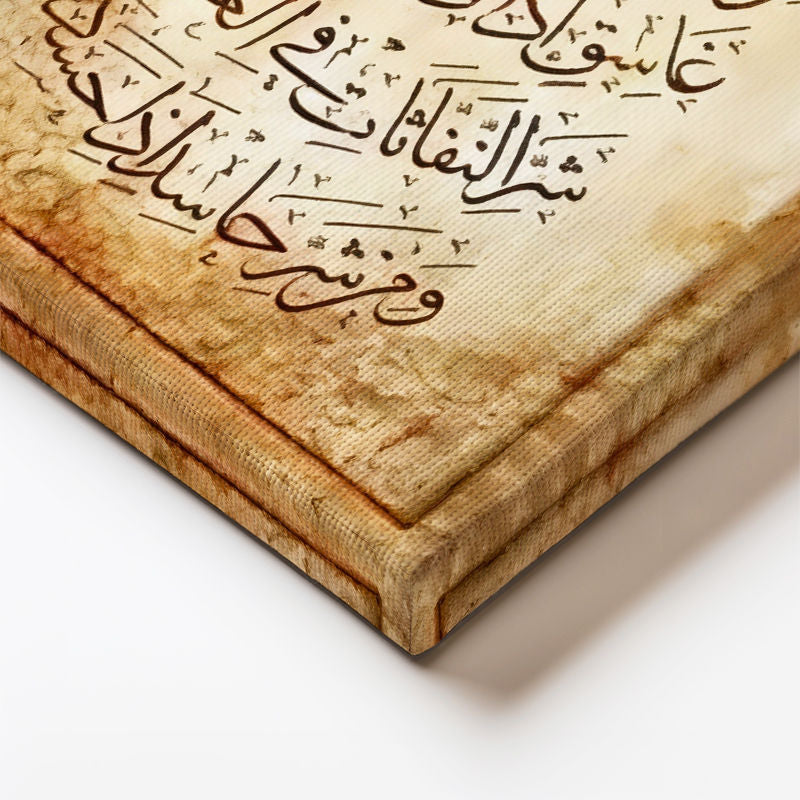 غَاسِقٍ إِذَا
شَرِّ النَّفَّاثَاتِ فِي
وَمِنْ شَرِّ حَاسِدٍ إِذَا حَسَدَ